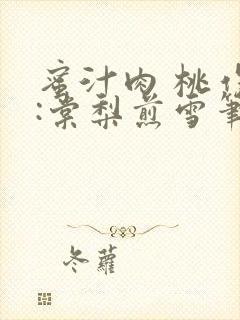 蜜汁肉桃
:棠梨煎雪筆
冬蘿